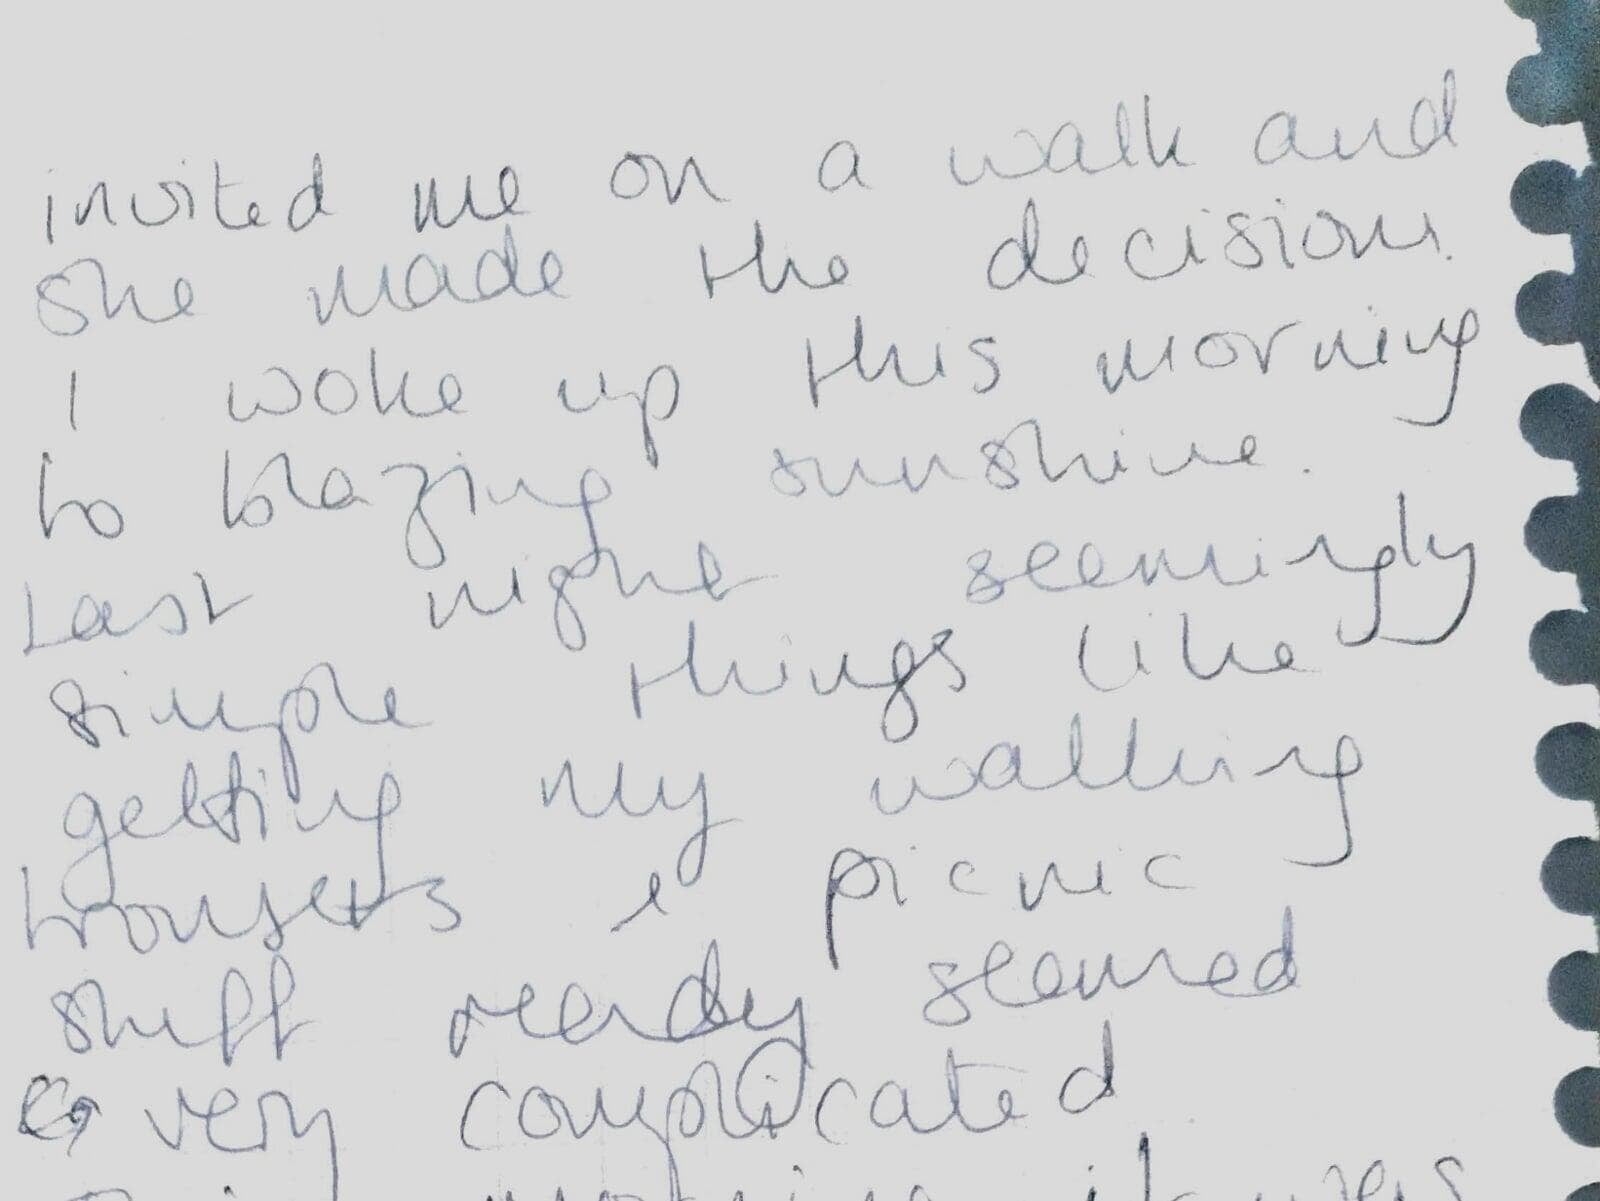 invited me on a walk and
she made the decision.
I woke up this morning
to blazing sunshine.
Last night seemingly
simple things like
getting my walking
trousers & picnic
stuff ready seemed
very complicated
morning it was